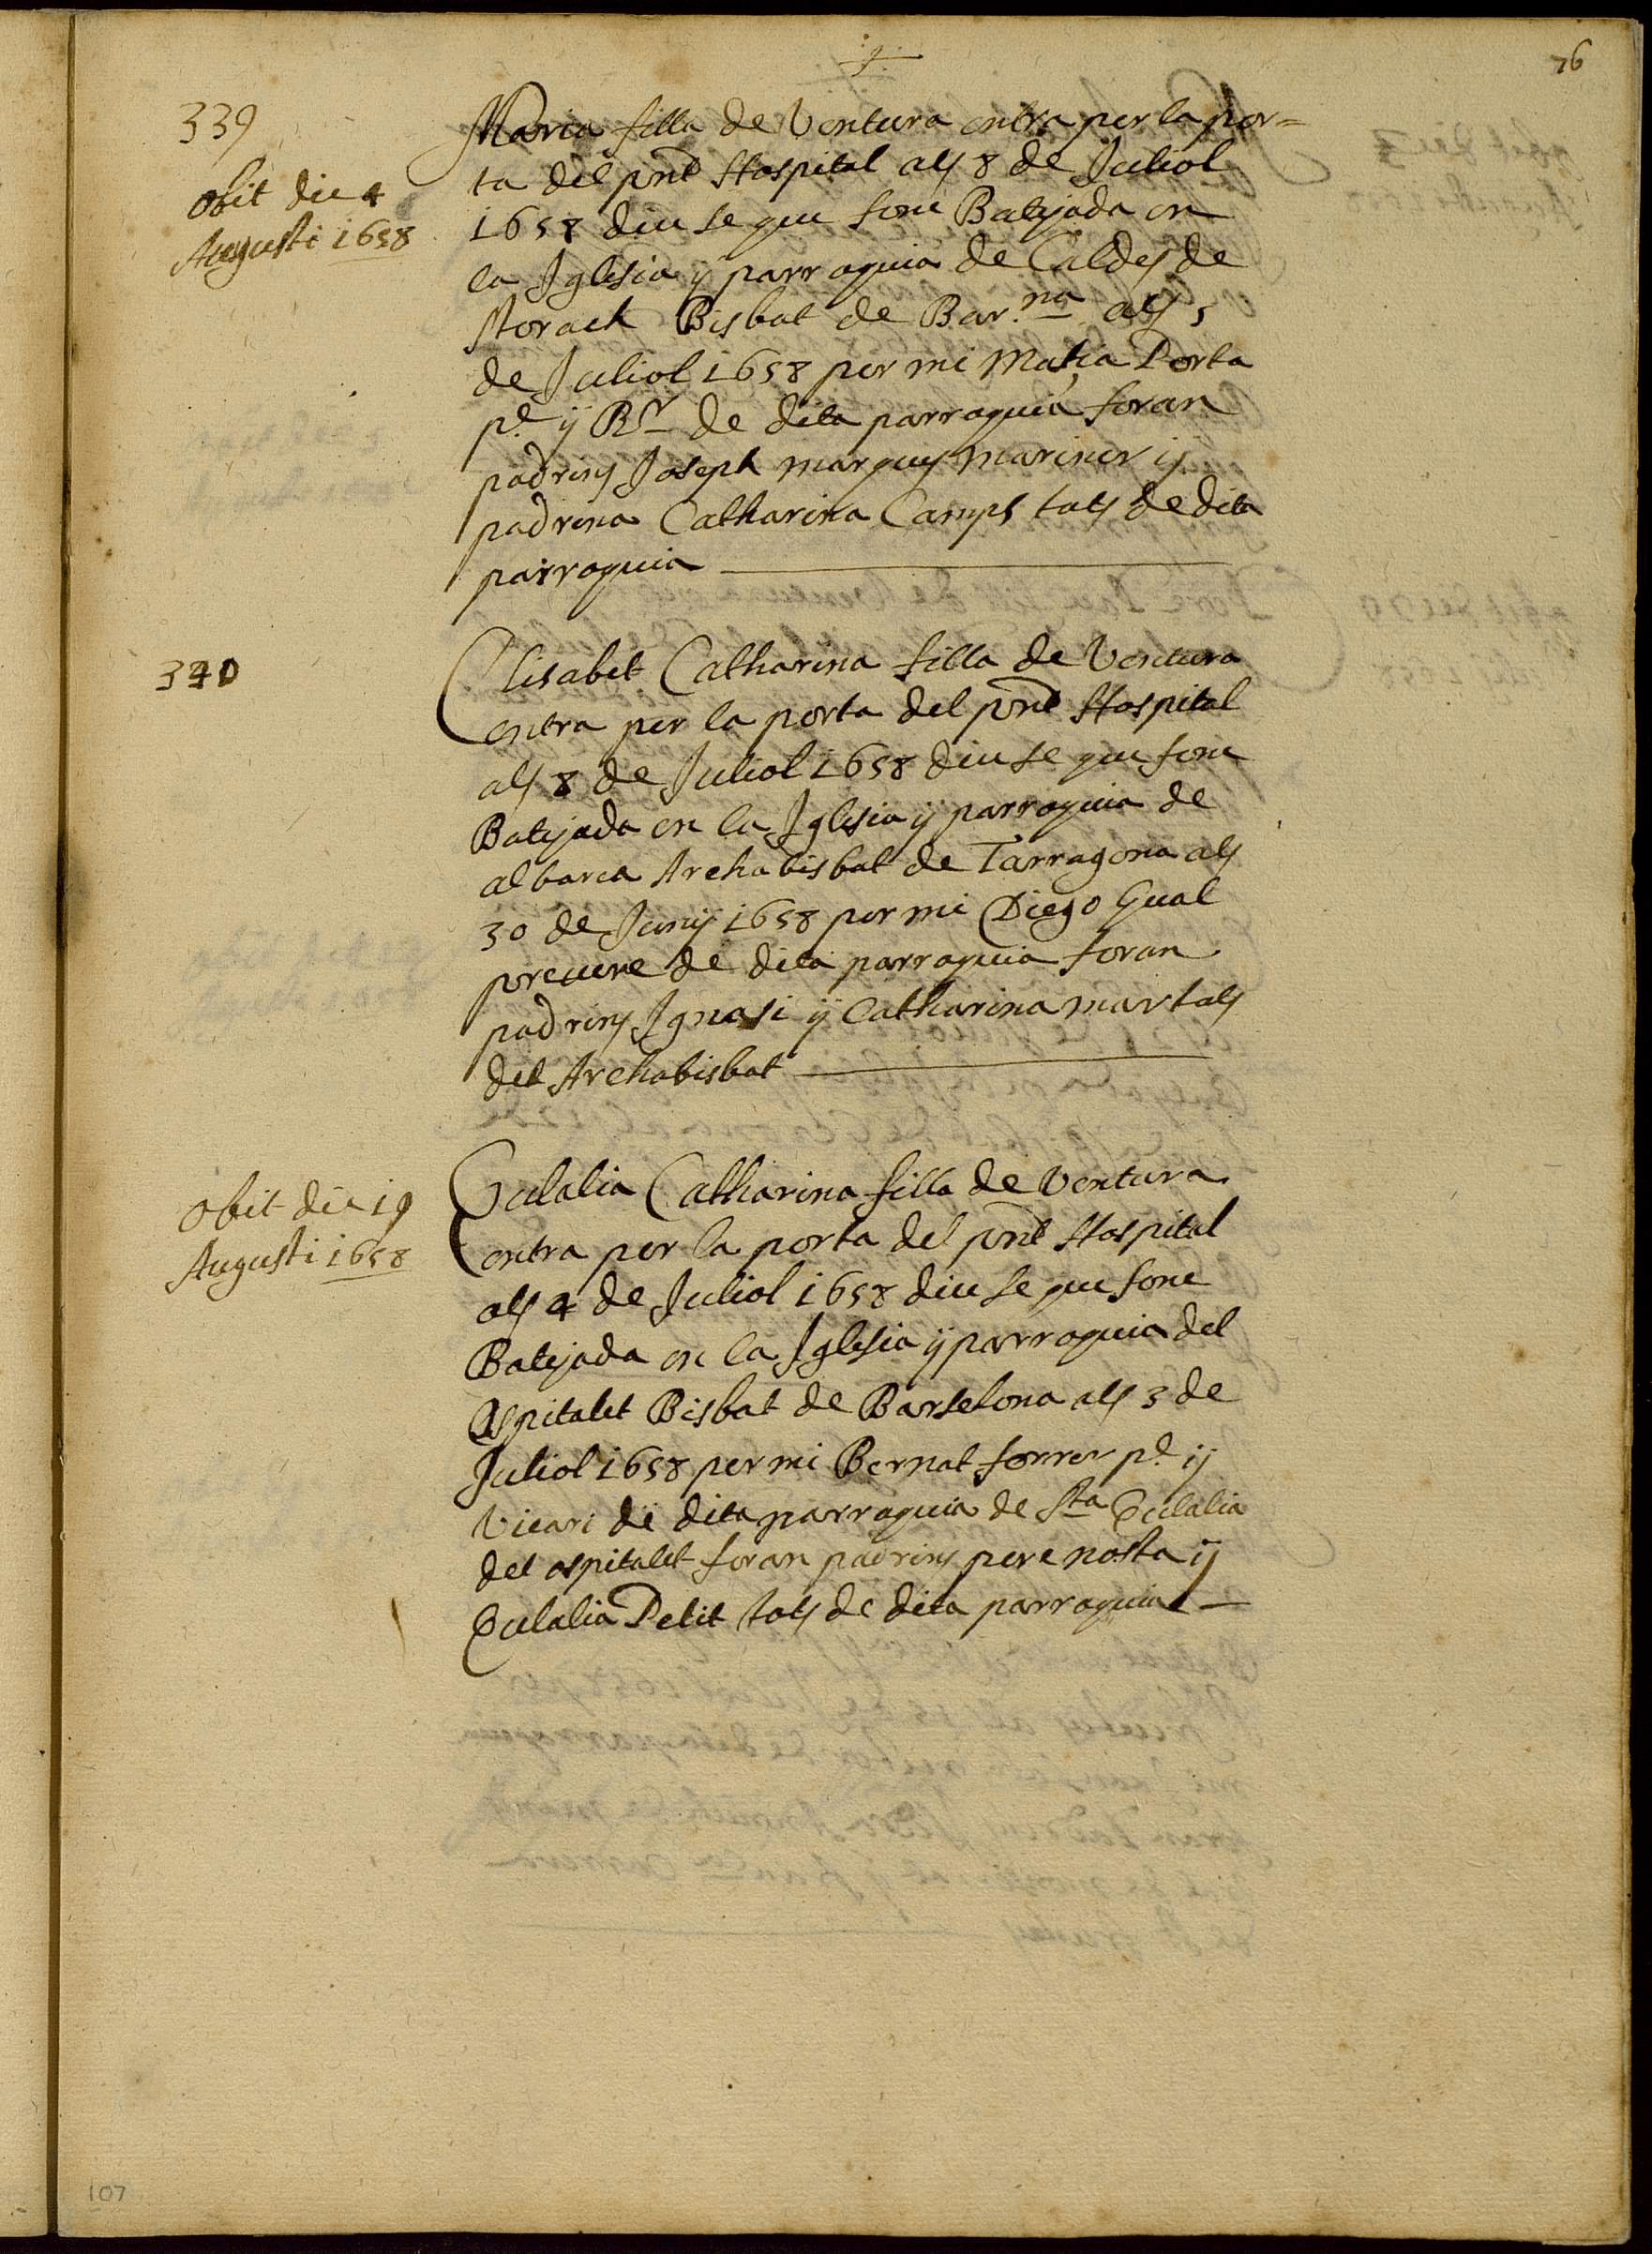 76
339
obit die 4
Augusti 1658
Maria filla de Ventura entra per la por=
ta del pnt Hospital als 8 de Juliol
1658 diu se que fonc Batejada en
la Iglesia y parroquia de Caldes de
strrach Bisbat de Bar.na als 5
de Juliol 1658 per mi Matia Porta
p.e y Rr de dita parroquia foran
padrins Joseph marques mariner y
padrina Catharina Camps tots de dita
parroquia
340
Elisabet Catharina filla de Ventura
entra per la porta del pnt Hospital
als 8 de Juliol 1658 diu se que fonc
Batejada en la Iglesia y parroquia de
albarca Archabisbat de Tarragona als
30 de Juny 1658 per mi Diego Gual
prevere de dita parroquia foran
padrins Ignasi y Catharina mar tots
del Archabisbat
obit die 19
Augusti 1658
Eulalia Catharina filla de Ventura
entra per la porta del pnt Hospital
als 4 de Juliol 1658 diu se que fonc
Batejada en la Iglesia y parroquia del
Ospitalet Bisbat de Barselona als 3 de
Juliol 1658 per mi Bernat ferrer p.e y
Vicari de dita parroquia de Sta Eulalia
del ospitalet foran padrins pere nosta y
Eulalia Petit tots de dita parroquia
107